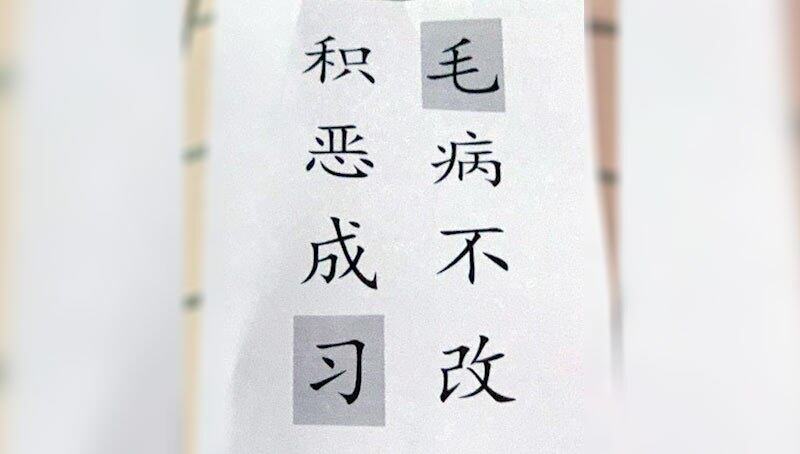 毛病不改
积恶成习